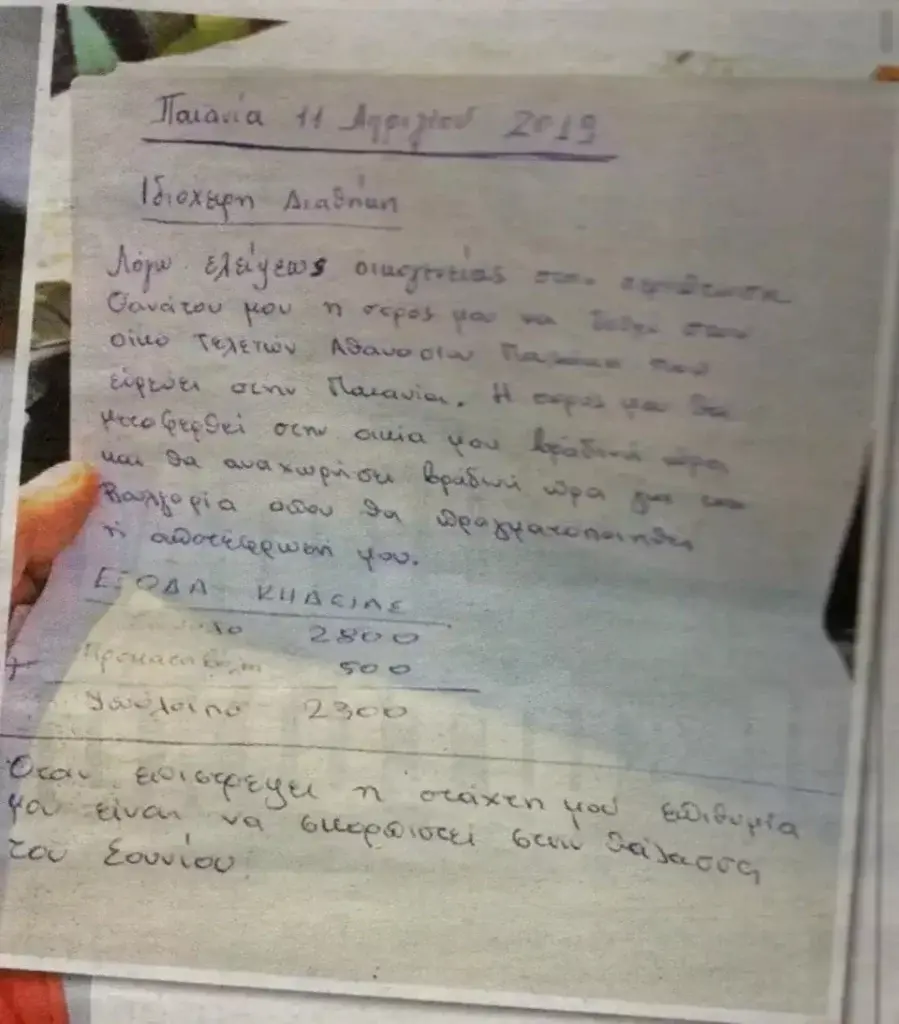 Παιανία 11 Απριλίου 2019
Ιδιόχειρη Διαθήκη
Λόγω ελείψεως οικογενείας στην περίπτωση
Θανάτου μου η σορός μου να δοθεί στον
οίκο Τελετών Αθανασίου που
είρεσει στην Παιανία. Η σορος μου θα
μεταφερθεί στην οικία μου βραδινή ώρα
και θα αναχωρήσει βραδινή ώρα για την
Βουλγαρία οπου θα πραγματοποιηθεί
η αποτέφρωση μου.
ΕΞΟΔΑ ΚΗΔΕΙΑΣ
2800
Προκαταβολή 500
Υπόλοιπο 2300
Όταν επιστρεψει η στάχτη μου επιθυμία
μου είναι να σκορπιστεί στην θάλασσα
του Σουνίου